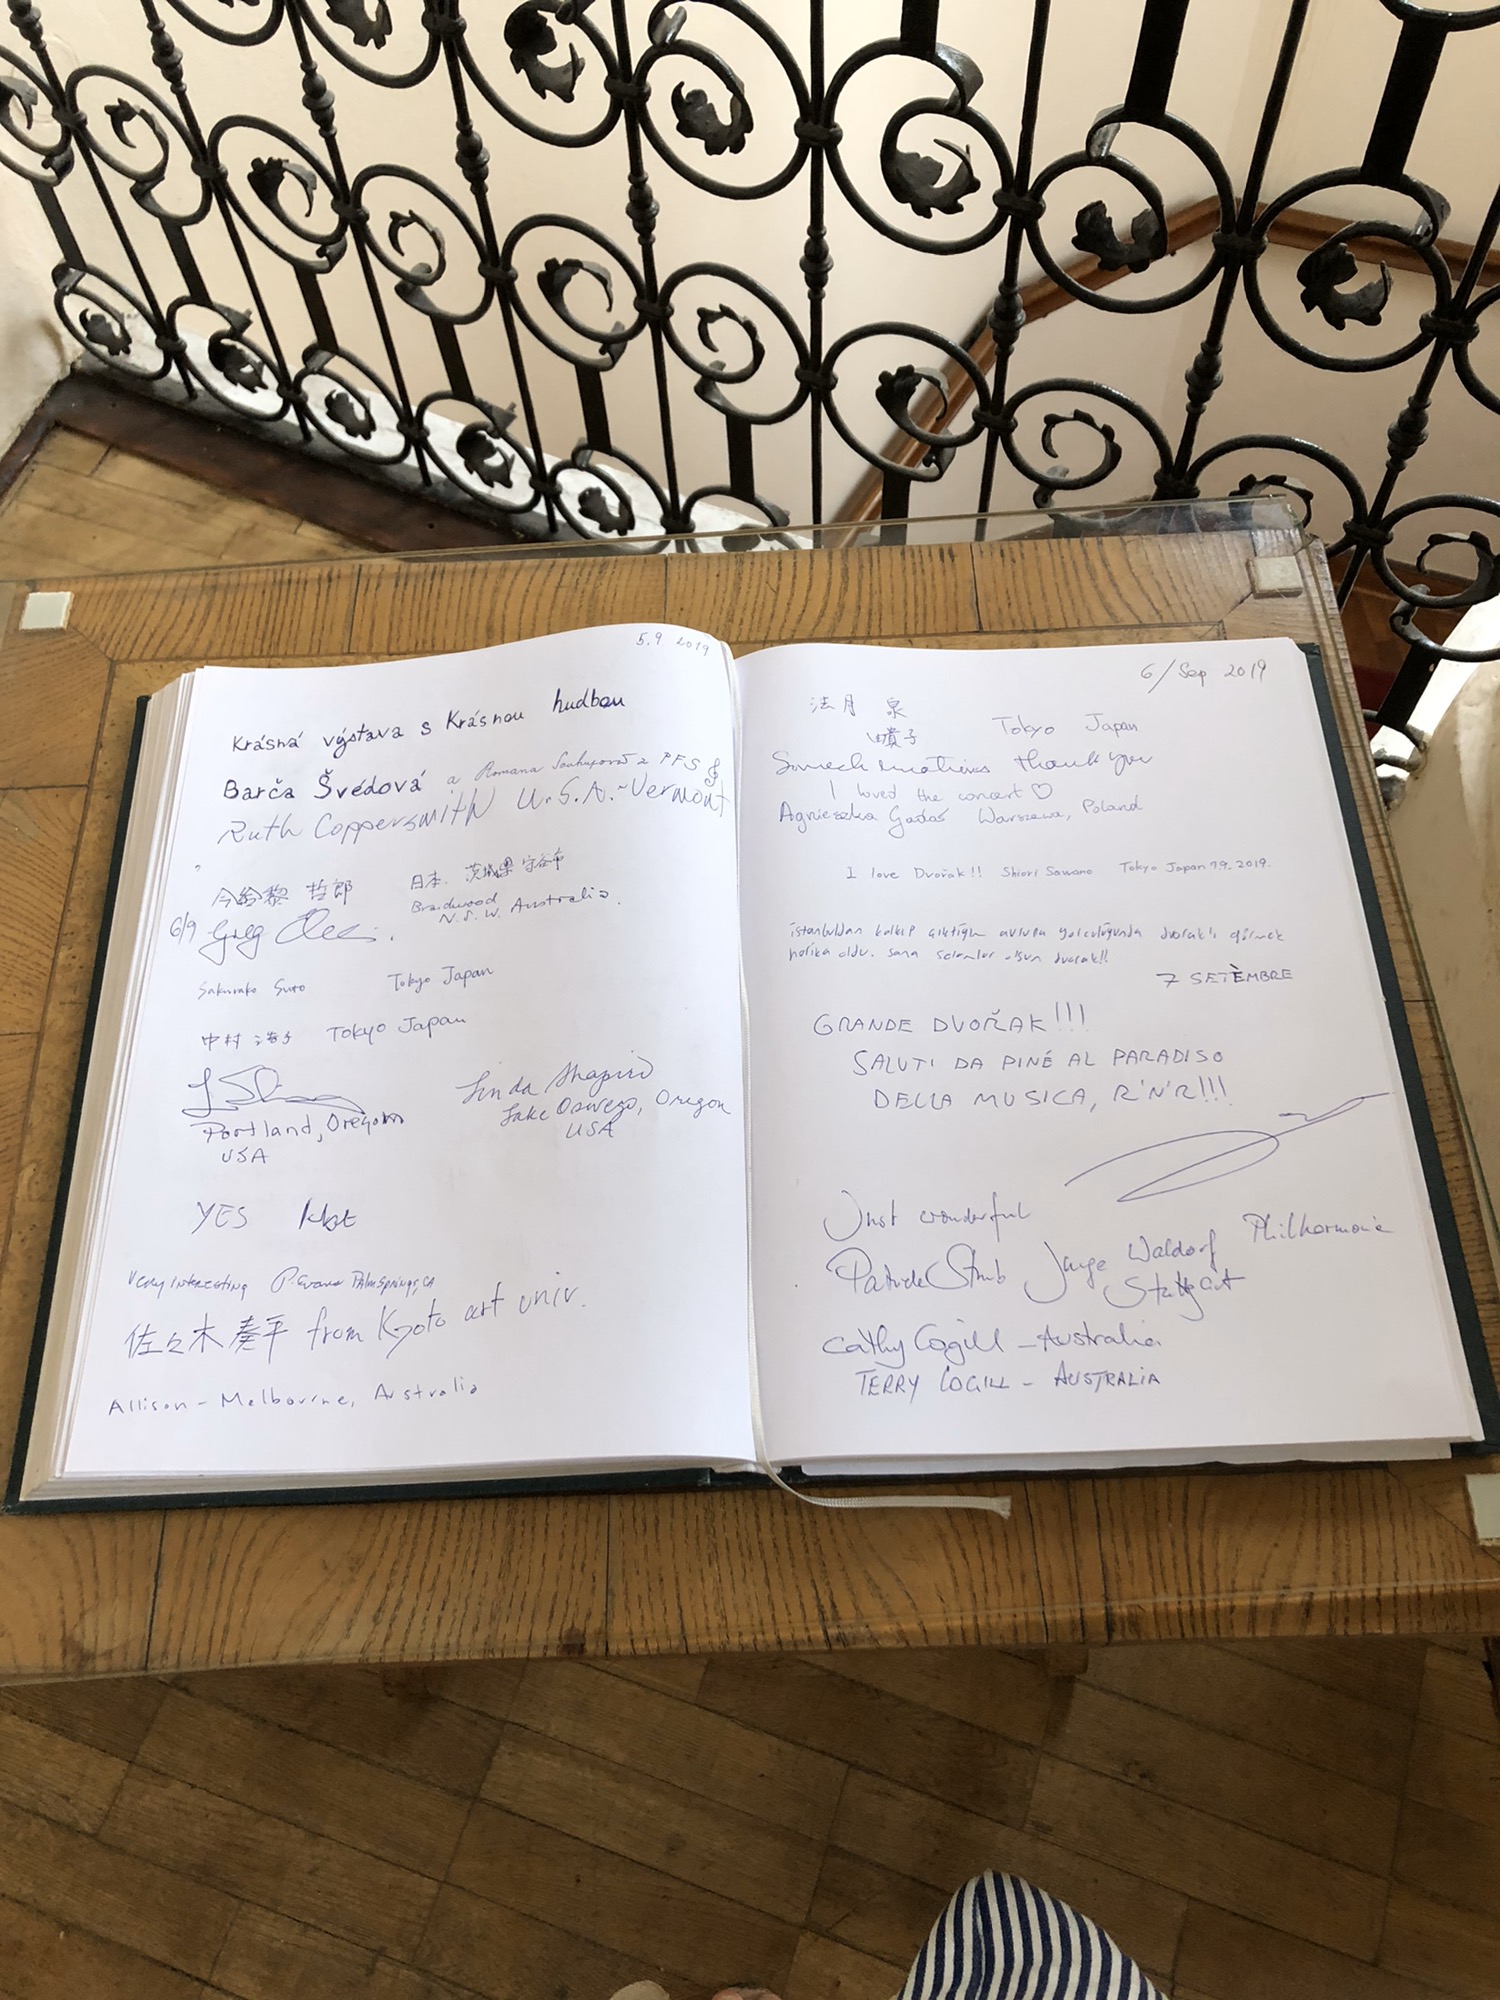 5.9 2019
Krásná výstava s Krásnou hudbou
Barča Švédová a Romana PFS
Ruth Coppersmith U.S.A.-Vermont
今給黎 哲郎 日本 茨城県 守谷市
6/9 Greg Braidwood
N.S.W. Australia.
Sakurako Suto Tokyo Japan
中村 Tokyo Japan
Portland, Oregon
USA
Linda Shapiro
Lake Oswego, Oregon
USA
YES
Very interesting P. Evans Palm Springs, CA
佐々木奏平 from Kyoto art univ.
Allison - Melbourne, Australia
6/Sep 2019
法月 泉
Tokyo Japan
thank you
I loved the concert ♡
Agnieszka Warszawa, Poland
I love Dvořak!! Shiori Sawano Tokyo Japan 7.9.2019.
istanbuldan kalkıp çıktığım avrupa yolculuğunda dvorak'ı görmek
harika oldu. sana selamlar olsun dvorak!!
7 SETÈMBRE
GRANDE DVOŘAK!!!
SALUTI DA PINÉ AL PARADISO
DELLA MUSICA, R'N'R!!!
Just wonderful
Junge Waldorf Philharmonie
Stuttgart
Cathy Cogill - Australia
TERRY COGILL - AUSTRALIA